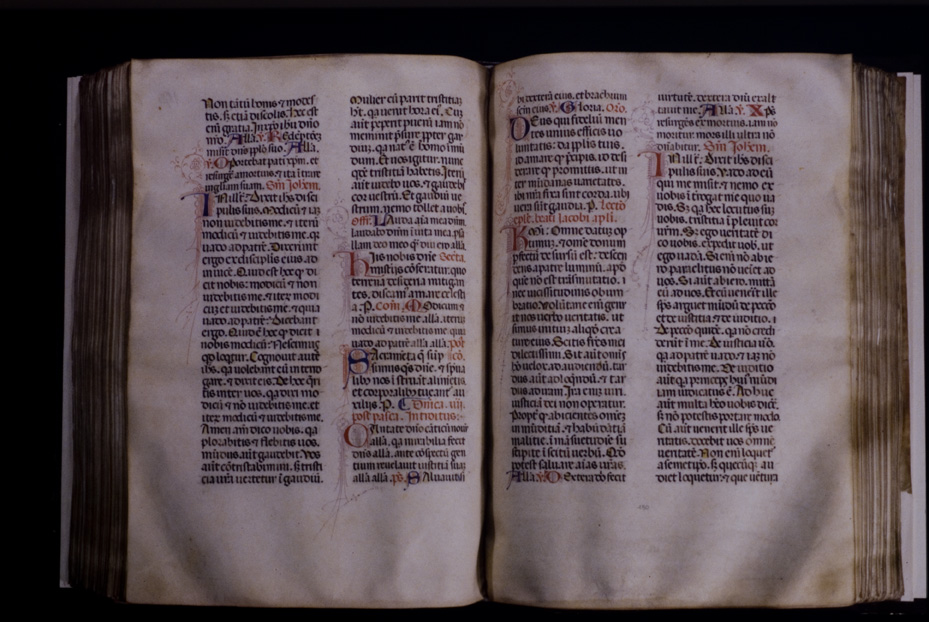 Non tātū bonis ⁊ modes
tis. s; etiā discolis. hec est
eni gratia. In xpo ihū dño
nro. Alla. ℣. Redēptōeȝ
misit dñs pplo suo. Alla.
℣. Oportebat pati xpm. et
resurge a mortuis. ⁊ ita ītrare
in gloriam suam. Scd'm Johem.
In illo t. Dixit ihs disci
pulis suis. Modicū ⁊ iaȝ
non videbitis me. ⁊ iterū
modicū ⁊ videbitis me. qa
vado ad patrē. Dixerunt
ergo ex discipulis eius ad
invicē. Quid est hoc qd di
cit nobis: modicū ⁊ non
videbitis me. ⁊ iterȝ modi
cuȝ et videbitis me. ⁊ quia
vado ad patrē? Dicebant
ergo. Quid ē hoc qd dicit
modicū? Nescimus
qd loqtur. Cognovit autē
ihs. qa volebant eū interro
gare. ⁊ dixit eis. De hoc qri
tis inter vos. qa dixi mo
dicū ⁊ nō videbitis me. et
iterȝ modicū ⁊ videbitis me.
Amen am dico vobis. qa
plorabitis ⁊ flebitis vos.
mūdus aūt gaudebit. Vos
aūt cōtristabimini. s; tristi
cia vra vertetur ī gaudiū.
Mulier cū parit tristitiaȝ
ht. qa venit hora ei'. Cuȝ
aūt pepit puerū iam nō
meminit pssure ppter gau
diuȝ. qa nat' ē homo ī mū
dum. Et vos igitur. nunc
qdē tristitiā habetis. Iterū
aūt videbo vos. ⁊ gaudebit
cor vestrū. Et gaudiū ve
strum. nemo tollet a vobis.
Off. Lauda aīa mea dñm.
laudabo dñm ī vita mea. psal
lam deo meo qdiu ero. alla.
His nobis dñe Secta.
misteriis cōferatur. quo
terrena desideria mitigan
tes. discam' amare celesti
a. P. Com. Modicum ⁊
nō videbitis me. alla. iterū
modicū ⁊ videbitis me. qui
vado ad patrē. alla alla. post
Sacramēta q sūp
simus qs dñe. ⁊ spirita
libȝ nos īstruāt alimētis.
et corporalibȝ tueant' au
xiliis. P. Dñica. iiij.
post pasca. Introitus.
Cantate dño cāticū novū
alla. qa mirabilia fecit
dñs alla. ante cōspectū gen
tium revelavit iustitiā suā
alla alla. ps. Salvavit sibi
dexterā eius. et brachium
scm eius. ℣. Gloria. Oro.
Deus qui fidelium men
tes unius efficis vo
luntatis: da pplis tuis.
id amare qd precipis. id desi
derare qd promittis. ut in
ter mūdanas varietates.
ibi nra fixa sint corda. ubi
vera sūt gaudia. P. lectō
epłe. beati Jacobi apłi.
Kmi. Omne datuȝ op
timuȝ. ⁊ ome donum
pfectū desursū est. descen
dens a patre luminū. apd
que nō est trāsmutatio. nec
vicissitudinis obum
bratio. Volūtarie eni genu
it nos verbo veritatis. ut
simus initiuȝ aliqd crea
ture eius. Scitis frēs mei
dilectissimi. Sit aūt omis
hō velox. ad audiendū. tar
dus aūt ad loqndū. ⁊ tar
dus ad iram. Ira eni viri.
iustitiā dei non operatur.
Propt' qd abicientes omēȝ
inmūditiā. ⁊ habūdātiā
malitie. ī māsuetudine su
scipite īsitū verbū. Qd
potest salvare aīas vras.
Alla. ℣. Dextera dei fecit
virtutē. dextera dni exal
tavit me. Alla. ℣. Xps
resurgēs ex mortuis. iam nō
moritur. mors illi ultra nō
dnābitur. Scd'm Johem.
In illo t. Dixit ihs disci
pulis suis. Vado ad eū
qui me misit. ⁊ nemo ex
vobis ītrogat me quo va
dis. S; qa hec locutus suȝ
vobis. tristitia īplevit cor
vrm. S; ego veritatē di
co vobis. expedit vob. ut
ego vadā. Si eni nō abie
ro paraclitus nō veiet ad
vos. Si aūt abiero. mittā
eū ad vos. Et cū venerit ille
ipse arguet mūdū de pccō
et de iustitia. ⁊ de iuditio.
De pccō quidē. qa nō credi
derūt ī me. De iustitia vō.
qa ad patrē vado. ⁊ iaȝ nō
videbitis me. De iuditio
aūt qa princeps huj' mūdi
iam iudicatus ē. Adhuc
aūt multa hēo vobis dice'.
s; nō potestis portare modo.
Cū aūt venerit ille sps ve
ritatis. docebit vos omnē
veritatē. Non eni loquet'
a semetipo. s; quecūqȝ au
diet loquetur. ⁊ que vētura